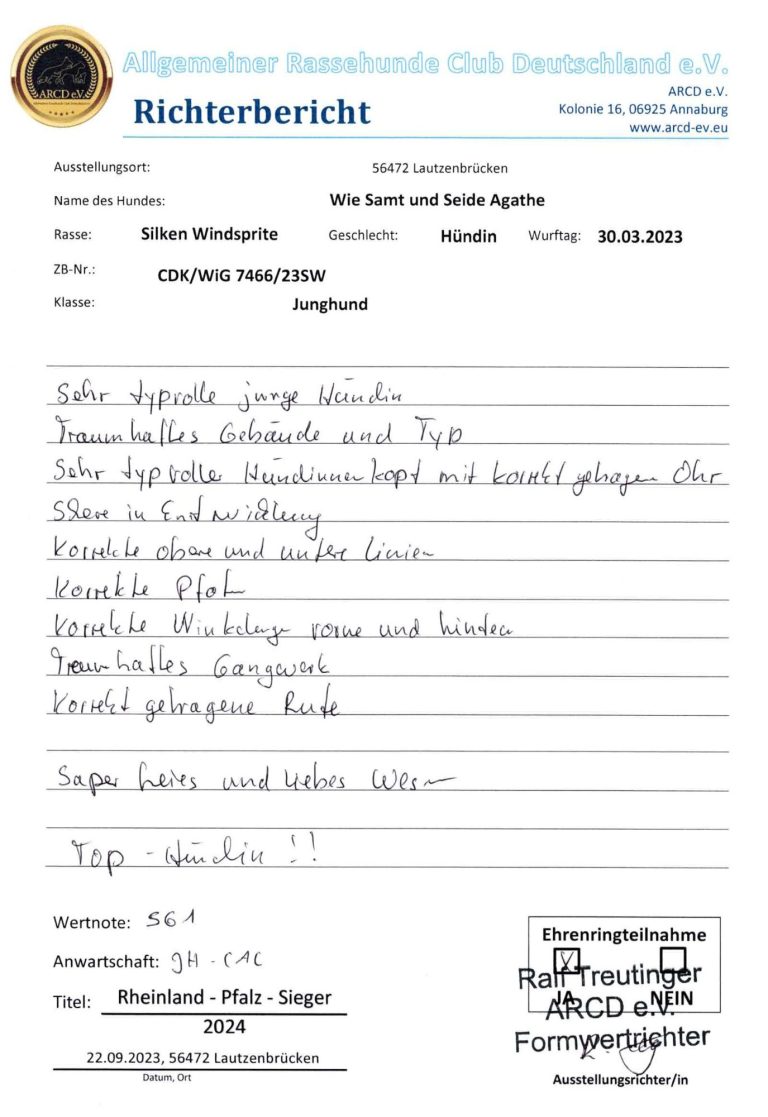 Allgemeiner Rassehunde Club Deutschland e.V.
ARCD e.V.
Richterbericht
ARCD e.V.
Kolonie 16, 06925 Annaburg
www.arcd-ev.eu
Ausstellungsort: 56472 Lautzenbrücken
Name des Hundes: Wie Samt und Seide Agathe
Rasse: Silken Windsprite Geschlecht: Hündin Wurftag: 30.03.2023
ZB-Nr.: CDK/WiG 7466/23SW
Klasse: Junghund
Sehr typvolle junge Hündin
Traumhaftes Gebäude und Typ
Sehr typvoller Hündinnenkopf mit korrekt getragen Ohr
in Entwicklung
Korrekte obere und untere Linien
Korrekte Pfoten
Korrekte Winkelungen vorne und hinten
Traumhaftes Gangwerk
Korrekt getragene Rute
Super freies und liebes Wesen
Top - Hündin !!
Wertnote: SG1
Anwartschaft: JH - CAC
Titel: Rheinland - Pfalz - Sieger
2024
22.09.2023, 56472 Lautzenbrücken
Datum, Ort
Ehrenringteilnahme
X
JA NEIN
Ralf Treutinger
ARCD e.V.
Formwertrichter
Ausstellungsrichter/in